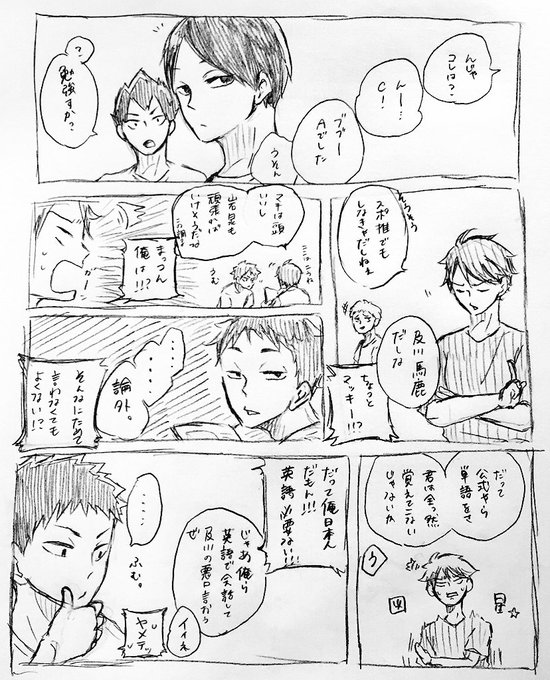 んじゃ
コレは？
んー…
C！
ブブー
Aでした
うそん
？
勉強すか？
そうそう
スポ推でも
しなきゃだしねぇ
及川馬鹿
だしな
ちょっと
マッキー!!?
マキは頭
いいし
岩泉も
頑張れば
いけそうだな
うむ
まっつん
俺は!!?
ガーン
・・・・・
・・・・
論外。
そんなにためて
言わなくても
よくない!?
だって
公式やら
単語をさ
君は全っ然
覚えてこない
じゃないか
う
図
星☆
だって俺日本人
だもん!!!
英語必要ない!!!
じゃあ俺ら
英語で会話して
及川の悪口言おう
ぜ
イイネ
ヤメテッ
・・・・
ふむ。